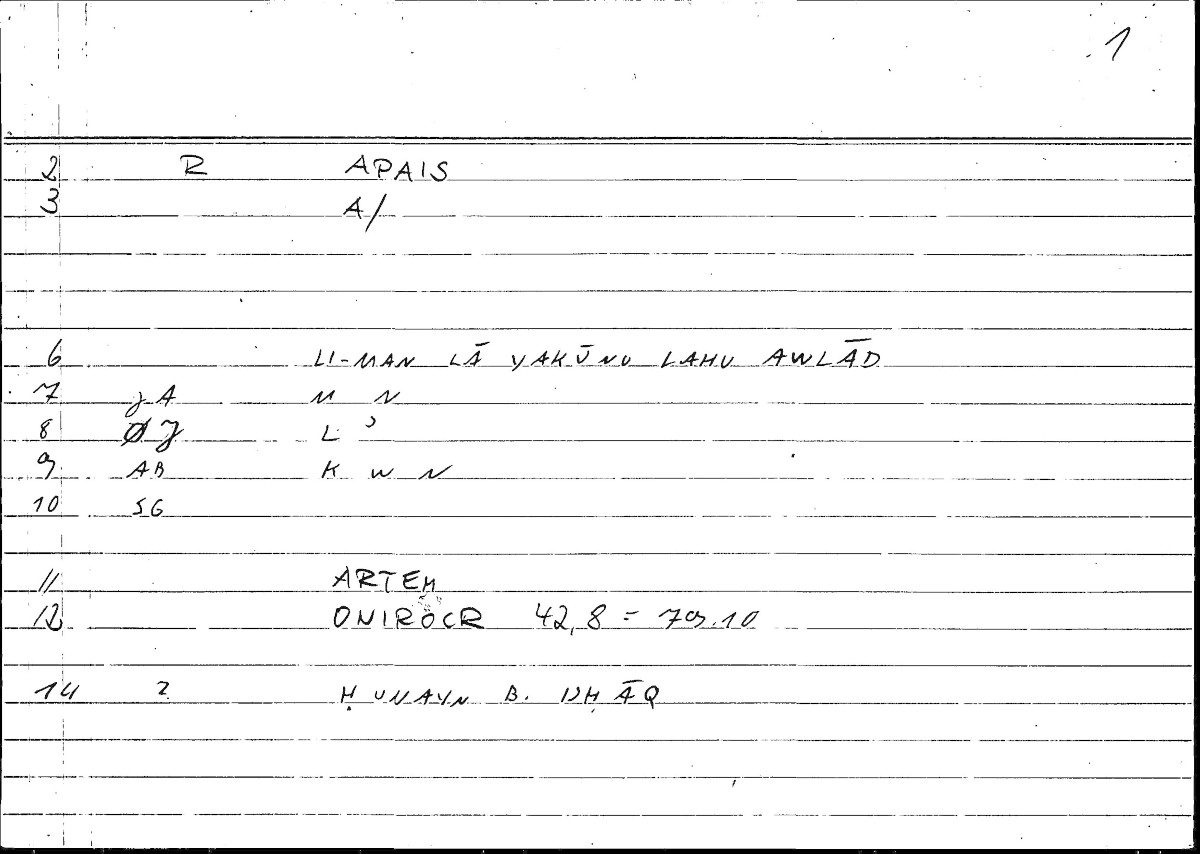 1
2 R APAIS
3 A/
6 LI-MAN LĀ YAKŪNU LAHU AWLĀD
7 JA M N
8 J L ʾ
9 AB K W N
10 SG
11 ARTEM
12 ONIROCR 42,8 = 79.10
14 2 ḤUNAYN B. ISḤĀQ